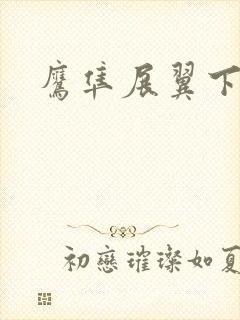 鷹隼展翼下
初戀璀璨如夏